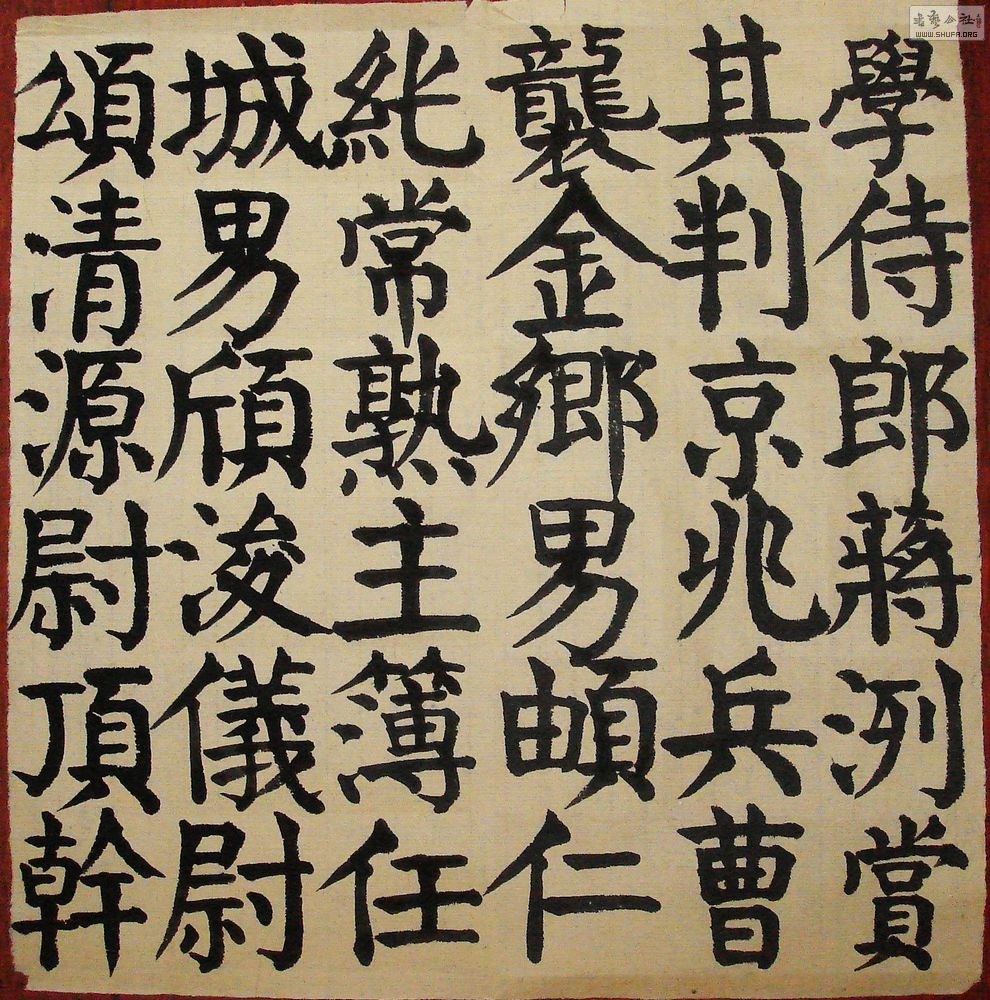 學侍郎蔣洌賞
其判京兆兵曹
襲金鄉男頔仁
純常熟主簿任
城男頎浚儀尉
頌清源尉頂幹
書藝公社
WWW.SHUFA.ORG